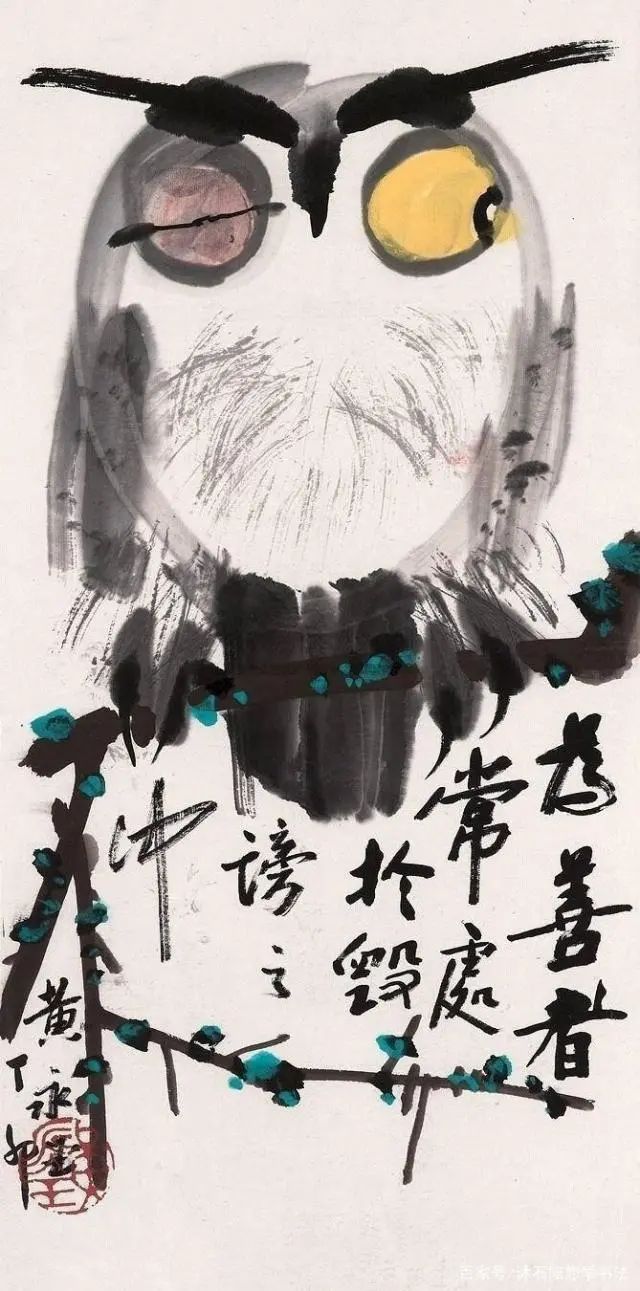 為善者
常處
於毀
謗之
中
黄永玉
丁卯
百家号·沐石陪您学书法